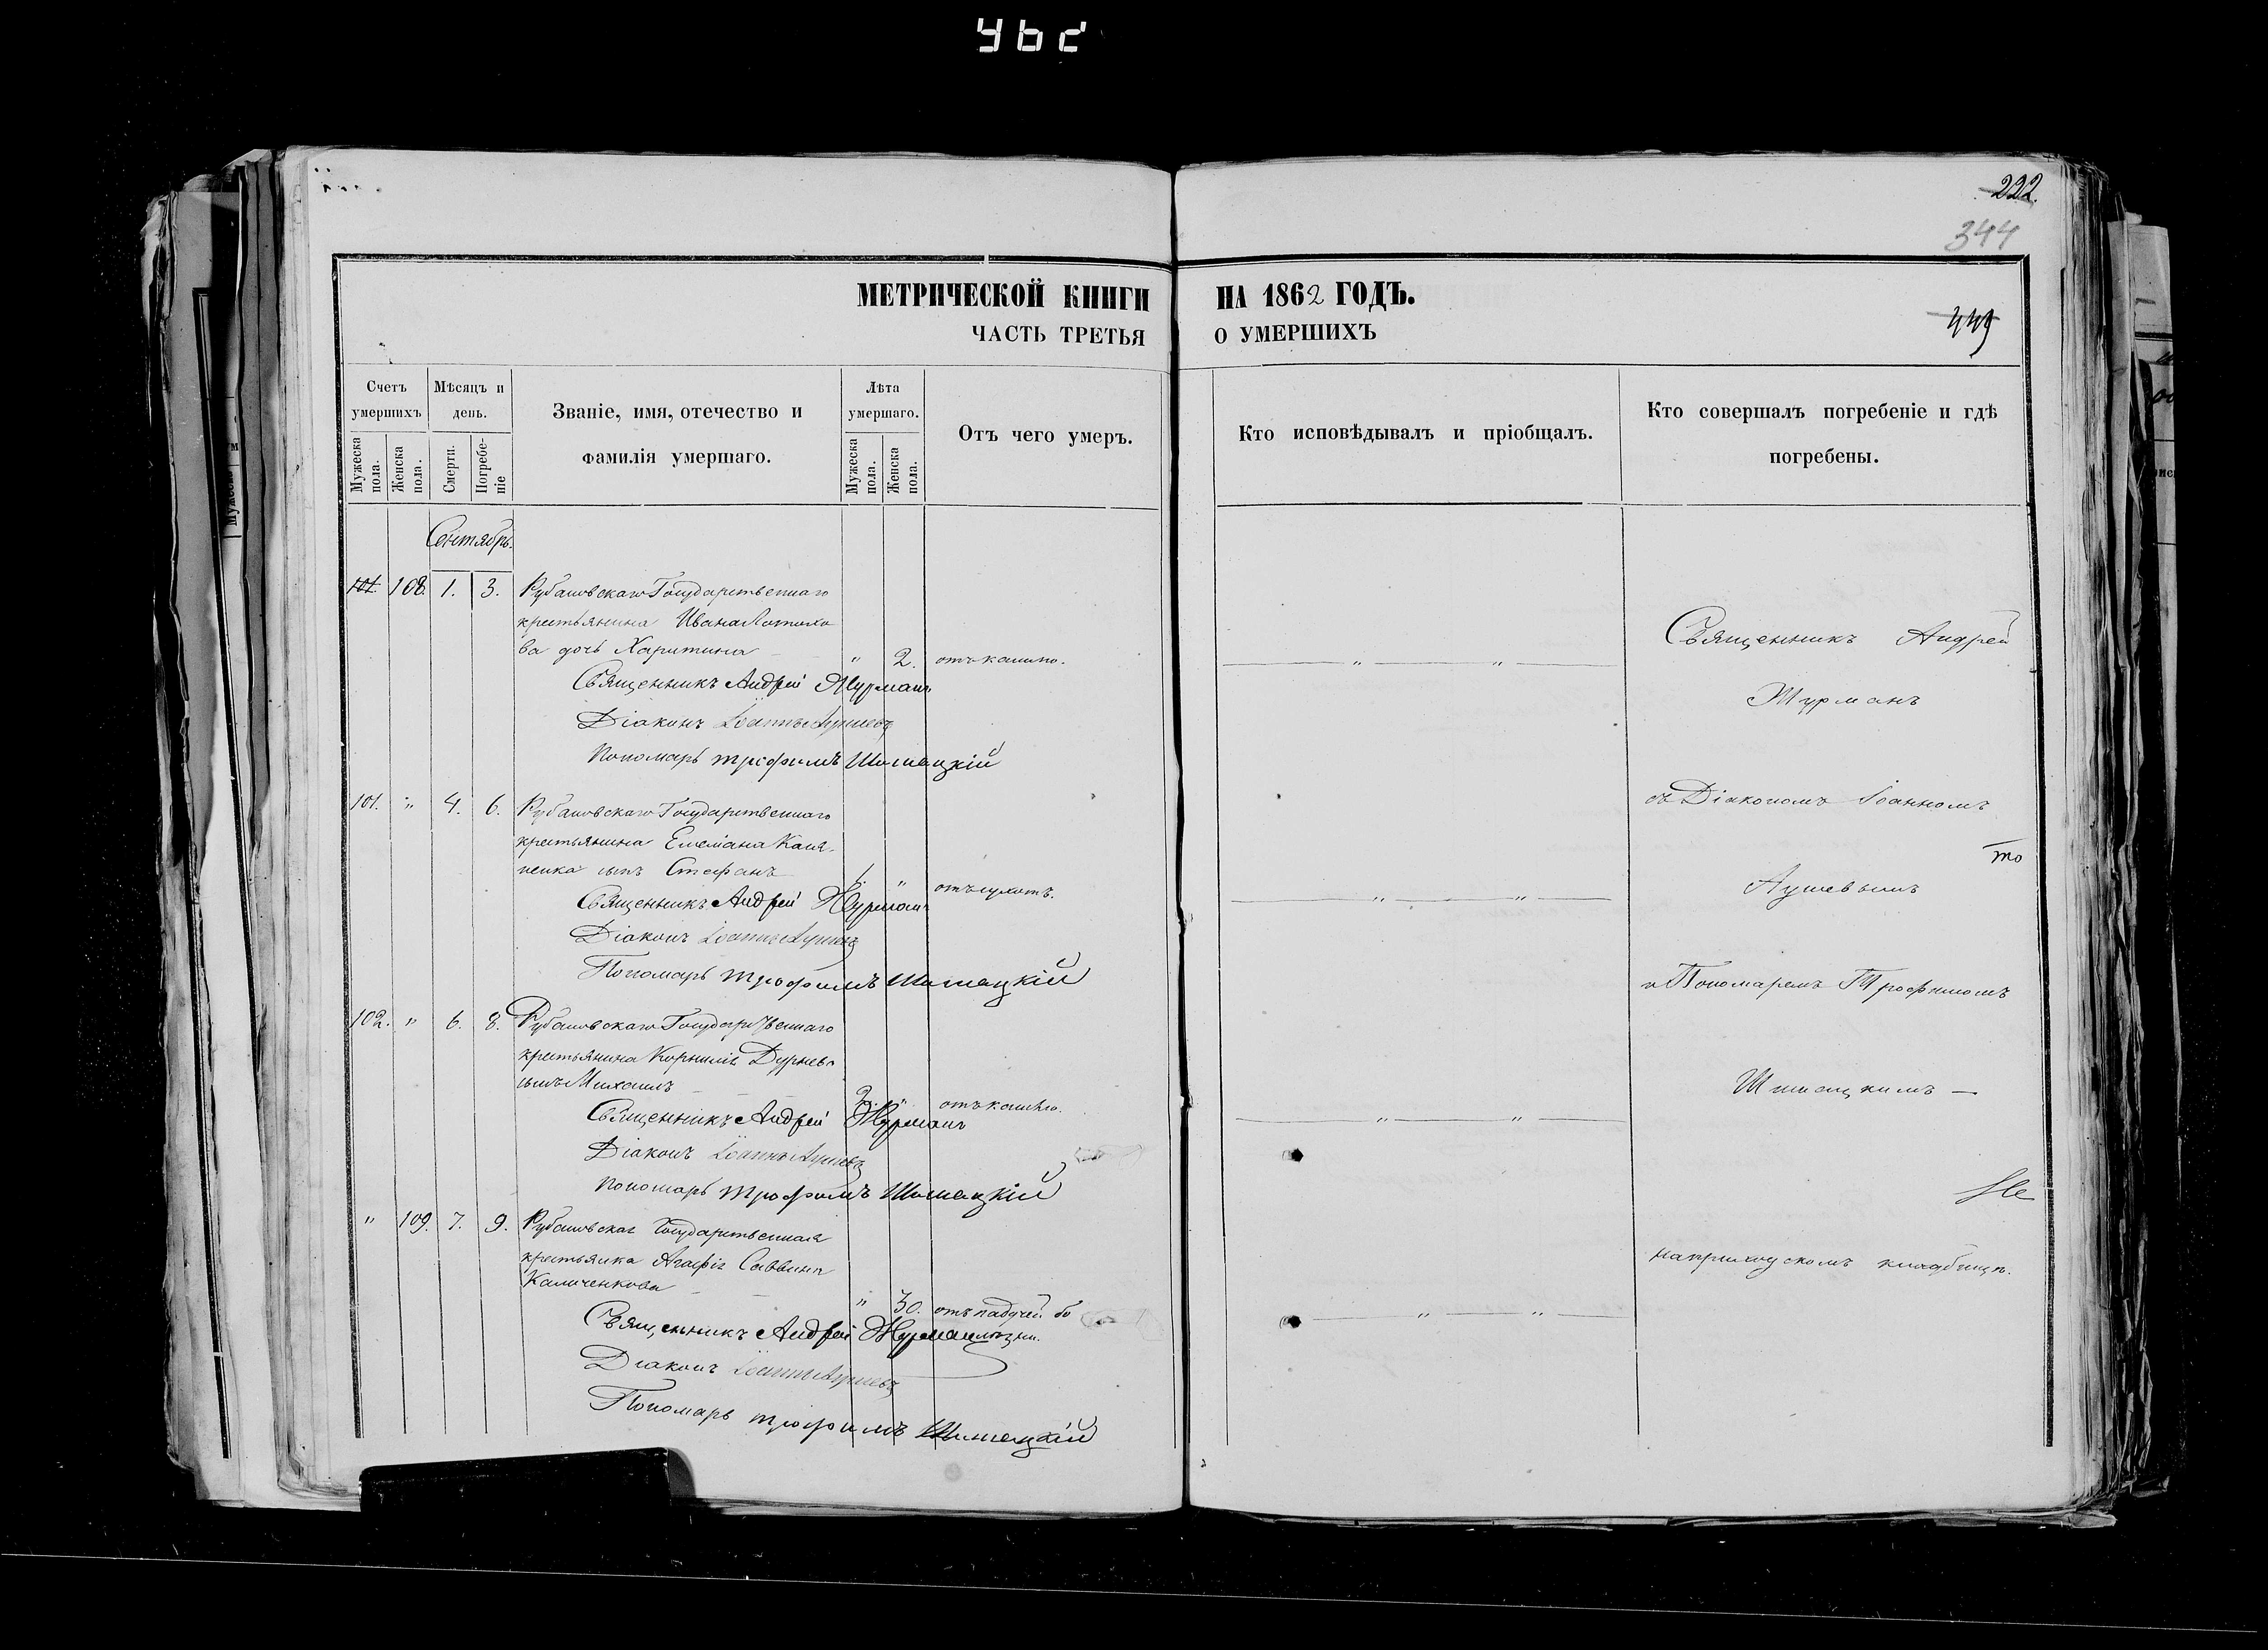 222.
344
449
МЕТРИЧЕСКОЙ КНИГИ НА 1862 ГОДЪ.
ЧАСТЬ ТРЕТЬЯ О УМЕРШИХЪ
Счетъ умершихъ
Мѣсяцъ и день.
Званіе, имя, отечество и фамилія умершаго.
Лѣта умершаго.
Отъ чего умеръ.
Кто исповѣдывалъ и пріобщалъ.
Кто совершалъ погребеніе и гдѣ погребены.
Мужеска пола.
Женска пола.
Смерти.
Погребеніе
Мужеска пола.
Женска пола.
Сентябрь.
101. 108. 1. 3. Рубановскаго Государственнаго
крестьянина Ивана
ва дочь Харитина " 2. отъ кашлю.
Священникъ Андрей Журманъ
Діаконъ Іоаннъ Аушевъ
Пономарь Трофимъ Шишацкій
101. " 4. 6. Рубановскаго Государственнаго
крестьянина
сынъ Стефанъ 1. " отъ сухотъ.
Священникъ Андрей Журманъ
Діаконъ Іоаннъ Аушевъ
Пономарь Трофимъ Шишацкій
102. " 6. 8. Рубановскаго Государственнаго
крестьянина Корнилія Дурнева
сынъ Михаилъ 2. " отъ кашлю.
Священникъ Андрей Журманъ
Діаконъ Іоаннъ Аушевъ
Пономарь Трофимъ Шишацкій
" 109. 7. 9. Рубановская Государственная
крестьянка Агафія Саввина
Каличенкова " 30. отъ падучей бо
лѣзни.
Священникъ Андрей Журманъ
Діаконъ Іоаннъ Аушевъ
Пономарь Трофимъ Шишацкій
Священникъ Андрей
Журманъ
съ Діакономъ Іоанномъ
то
Аушевымъ
и Пономаремъ Трофимомъ
Шишацкимъ —
на приходскомъ кладбищѣ.